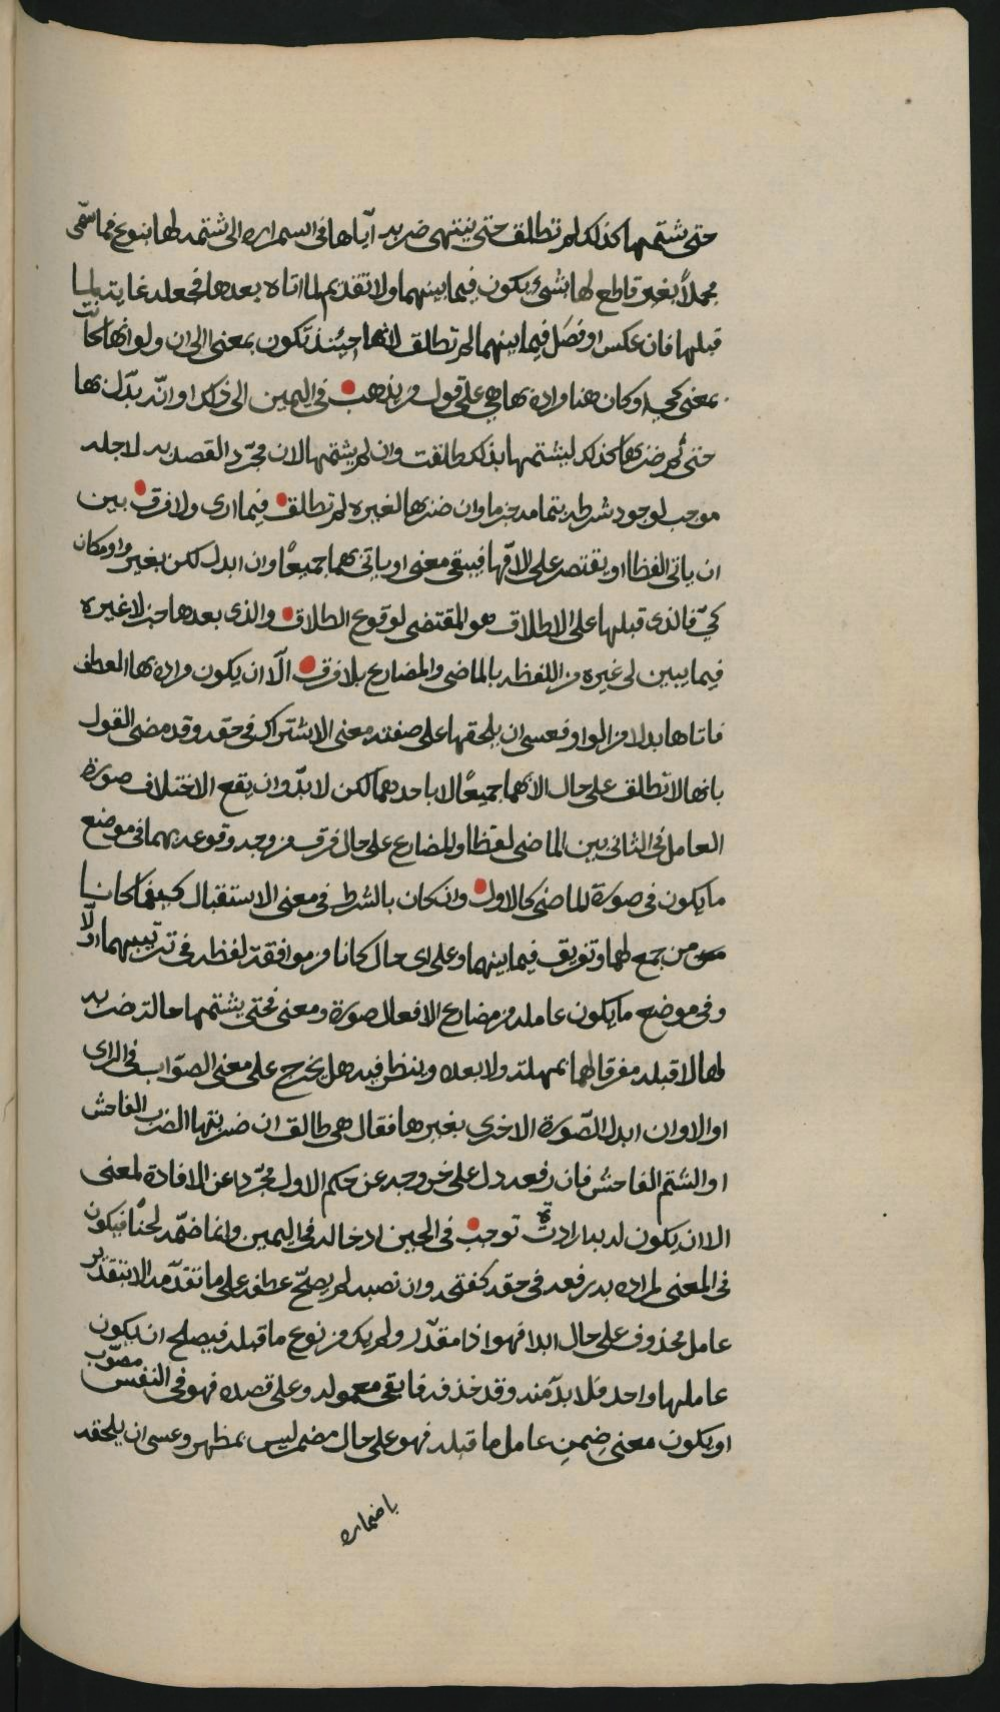 حتى شتمها كذلك لم تطالق حتى ينتهي ضربه اياها في استمراره الى شتمه لها بنوع فما سمّي
مجملاً بغير قاطع لها بشيء يكون فيما بينهما ولا تقديم لما اتاه بعدها فجعله غاية لما
قبلها فان عكس او فصَل فيما بينهما لم تطالق لانها حينئذ تكون بمعنى الى ان ولو انها كانت
بمعنى كي او كان هنا مراده بها هي على قول من يذهب في اليمين الى ذلك او انه بدّلن بها
حتى ثم ضربها كذلك ليشتمها بذلك طلقت وان لم يشتمها لان مجرّد القصد به لاجله
موجب لوجود شرطه بتمامه جزما وان ضربها لغيره لم تطالق فيما ارى ولا فرق بين
ان ياتي الفظا او يقتصر على لامها فيبقى معنى او ياتي بهما جميعًا وان ابدل لكن بغير واو مكان
كي فالذي قبلها على الاطلاق هو المقتضى لوقوع الطلاق والذي بعدها جزا لا غيره
فيما يبين لي غيره من اللفظ بالماضي والمضارع بلا فرق الّا ان يكون مراده بها العطف
فاتاها بدلا من الواو فعسى ان يلحقها على صفته معنى الاشتراك في حقه وقد مضى القول
بانها لا تطالق على حال الا بهما جميعًا لا باحدهما لكن لا بدّ وان يقع الاختلاف صورة
العامل في الثاني بين الماضي لفظا والمضارع على حال فرق من وجه وقوعه بهما في موضع
ما يكون في صورة الماضي كالاول وان كان بالشرط في معنى الاستقبال كيفما كانا
من جمع لهما وتفريق فيما بينهما وعلى اي حال كانا من موافقة لفظه في ترتيبهما اولا
وفي موضع ما يكون عامله من مضارع الافعال صورة ومعنى فحتى يشتمها حالة ضربه
لها لا قبله مفرقا لهما بمهلة ولا بعده وينظر فيه هل يخرج على معنى الصّواب في الراى
او لا وان ابدل الصّورة الاخرى بغيرها فقال هي طالق ان ضربتها الضرب الفاحش
او الشتم الفاحش فان رفعه دل على خروجه عن حكم الاول مجرّدا عن الافادة لمعنى
الا ان يكون له بها رادة توجب في الحين ادخاله في اليمين وانما ضمّه لحنًا فيكون
في المعنى لمراده به رفعه في حقه كفتحه وان نصبه لم يصلح عطفه على ما تقدّمه الا بتقدير
عامل محذوف على حال ابدا فهو اذا مقدّر ولم يك من نوع ما قبله فيصلح ان يكون
عاملها واحد فلا بدّ منه وقد حذفه فابقى معموله وعلى قصده فهو في النفس مصوّب
او يكون معنى ضِمنِ عامل ما قبله فهو على حال مضمر ليس بمظهر وعسى ان يلحقه
باضماره